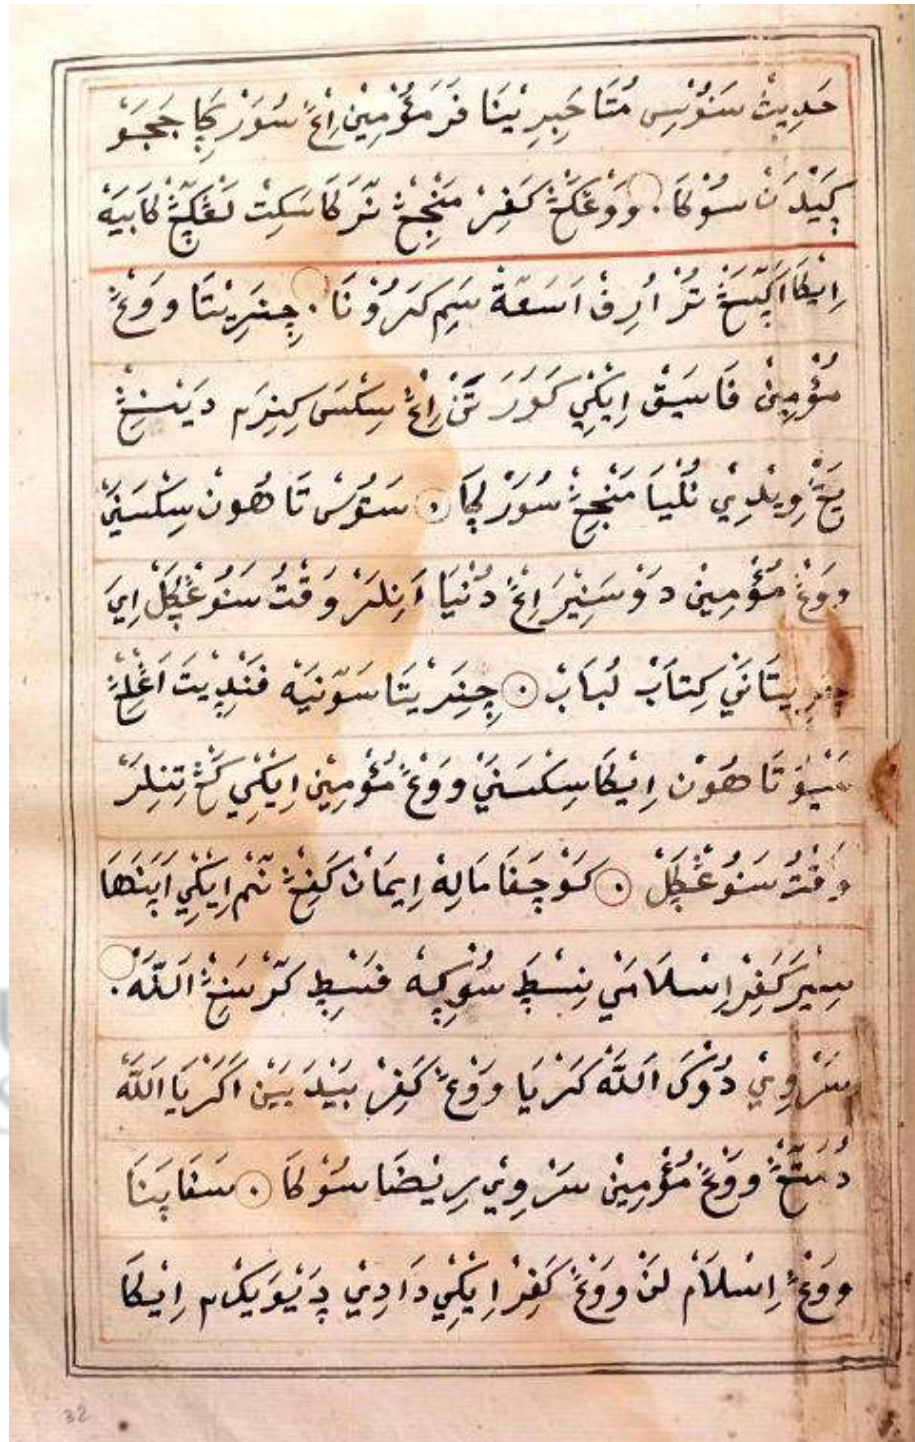 حَدِيثْ سَنَوُنْسِى مُتَاخِيرِيْنَا فَرَمَؤُمِيْن اِڠْ سُوَرْݢَا جَجَوْ
كَيْدَنْ سُوْكَا. وَوڠْكڠْ كَفِرْ مَنْجِڠْ نَرَكَا سَكِتْ لَڠْݢَڠْ كَابَيَهْ
اِيْكَا اَكَيَڠْ تُرْ اُرِفْ اَسَعَةْ سَمِ كَرَوُنَا. چِنَرِيْتَا وَوڠْ
مُؤْمِنْ فَاسِيَقْ اِيْكِيْ كَوَرَتَنْ اِڠْ سِكْسَ كِنِرَم دَيَنِڠْ
يَڠْ وِيْدِيْ نُلْيَا مَنْجِڠْ سُوَرْݢَا . سَتُوسْ تَاهُونْ سِكْسَنَيْ
وَوڠْ مُؤْمِيْن دَوْسَنِيْرَ اِڠْ دُنْيَا اَنِلَرْ وَقْتُ سَنُوڠْݢَلْ اِيَ
چِنَرِيْتَانَيْ كِتَابْ لُبَابْ . چِنَرِيْتَا سَوَنَيَهْ فَنْدِيْتَ اَڠْلِڠْ
سَيْوَ تَاهُوْن اِيْكَا سِكْسَنَيْ وَوڠْ مُؤْمِيْن اِيْكِيْ كَڠْ تِنِلَرْ
وَقْتُ سَنُوڠْݢَلْ . كَوْچَفَا مَالِهْ اِيمَانْ كَفِڠْ نَمْ اِيْكِيْ اَپَنَهَا
سِيْرَ كَفِرْ اِسْلَامَيْ نِسْطَ سُوْݢِهْ فَسْطِ كَرْسَنِڠْ اَللَّهْ.
سَرْوِيْ دُوْكَ اَللَّهْ كَرْيَا وَوڠْ كَفِرْ بَيْدَ يَيْن اَكَرْيَا اَللَّهْ
دُمَتَڠْ وَوڠْ مُؤْمِيْن سَرْوِيْ رِيْضَا سُوْكَا . سَفَا پَنَا
وَوڠْ اِسْلَامْ لَنْ وَوڠْ كَفِرْ اِيْكِيْ دَادِيْ ڎَيْوَيْك م اِيْكَا
32